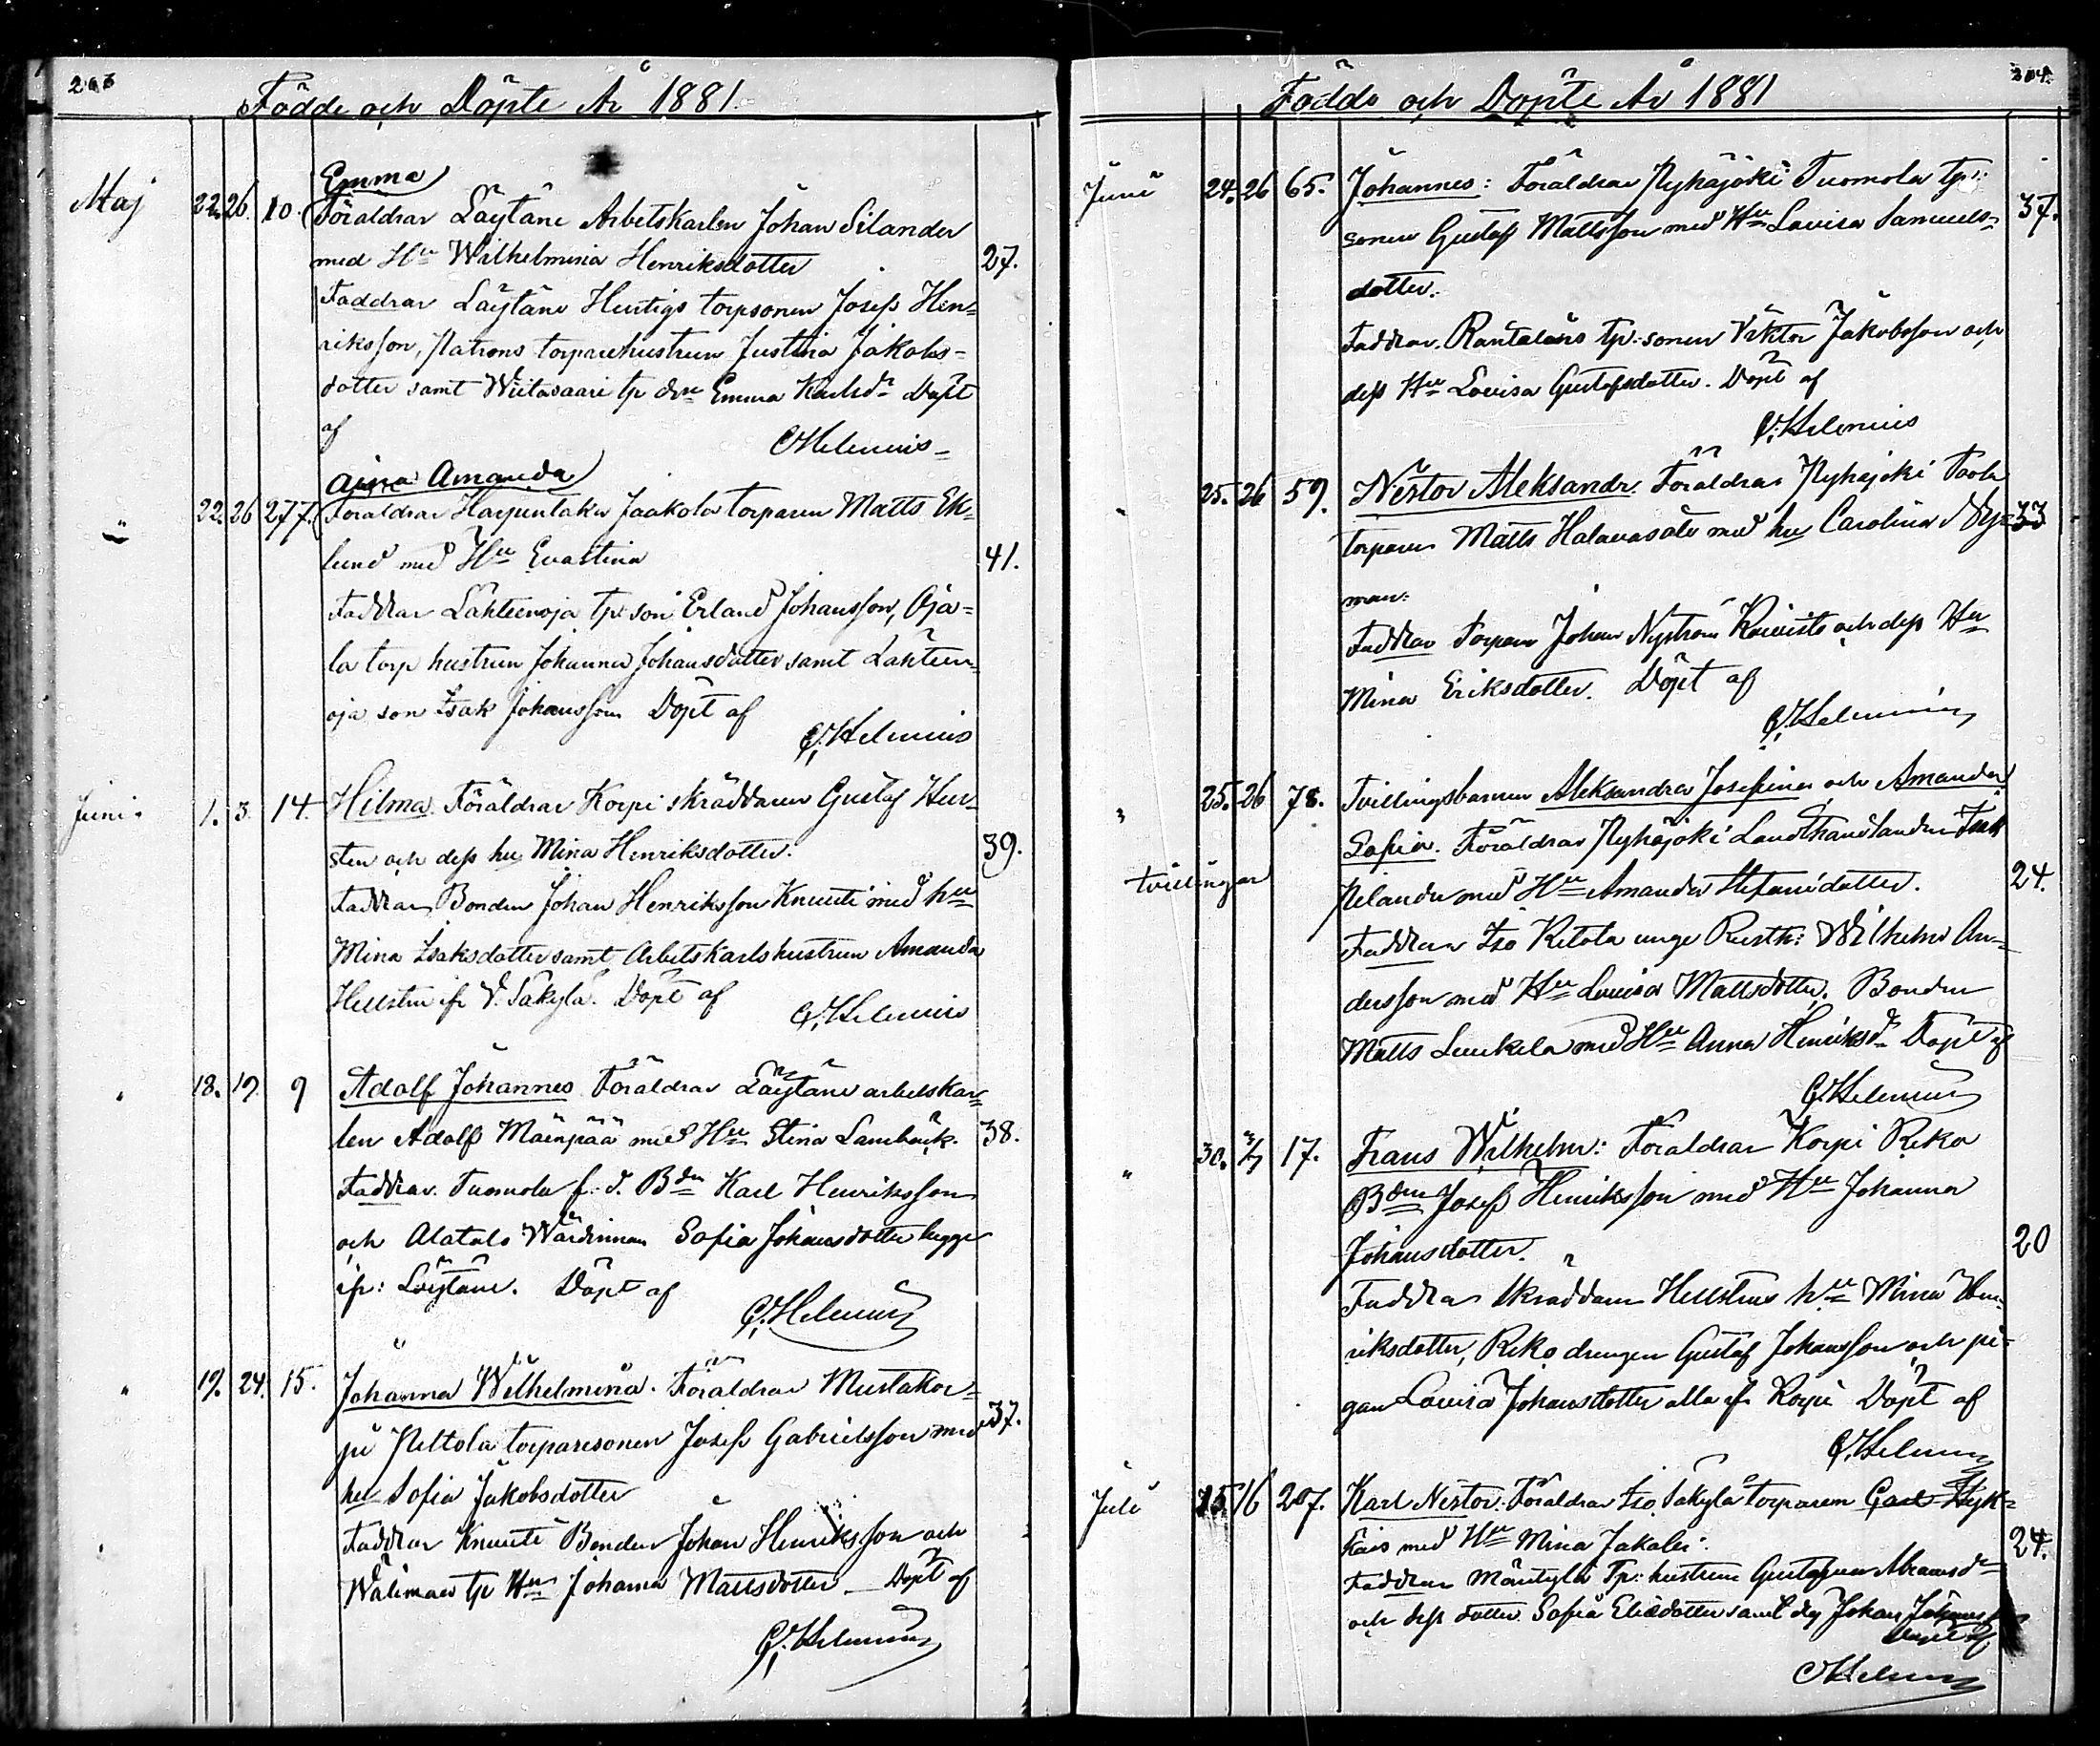 203
Födde och Döpte År 1881.
Maj 22. 26. 10. Emma
Föräldrar Säÿtäne Arbetskarlen Johan Silander
med Hu Wilhelmina Henriksdotter 27.
Faddrar Säÿtäne Hertigs torpsonen Josef Hen=
riksson, torparehustrun Justina Jakobs=
dotter samt Wiitasaari tp Emma Karlsdr Döpt
af
C. Helenius
22. 26 277. Aina Amanda
Föräldrar Harjuntaka Jaakola torparen Matts Ek=
lund med Hu Evastina 41.
Faddrar Lähteenoja tp: son Erland Johansson, Oja=
la torp hustrun Johanna Johansdotter samt Lähteen=
oja son Isak Johansson Döpt af
C. Helenius
Juni. 1. 3. 14. Hilma. Föräldrar Korpi skräddaren Gustaf
sten och dess hu Mina Henriksdotter. 39.
Faddrar Bonden Johan Henriksson Knuuti med hu
Mina Isaksdotter samt Arbetskarlshustrun Amanda
Hellsten ifr V. Säkylä. Döpt af
C. Helenius
18. 19. 9 Adolf Johannes Föräldrar Säÿtäne arbetskar=
len Adolf Mäenpää med Hu Stina Lambäck. 38.
Faddrar. Tuomola f. d. Bdn Karl Henriksson
och Alatalo Wärdinnan Sofia Johansdotter begge
ifr: Säÿtäne. Döpt af
C. Helenius
19. 24. 15. Johanna Wilhelmina. Föräldrar Mustakor=
pi Peltola torparesonen Josef Gabrielsson med 37.
hu Sofia Jakobsdotter
Faddrar Knuuti Bonden Johan Henriksson och
Välimaa tp Hu Johanna Mattsdotter Döpt af
C. Helenius
204.
Födde och Döpte År 1881
Juni 24. 26 65. Johannes: Föräldrar Pyhäjoki Tuomola tp:
sonen Gustaf Mattsson med Hu Lovisa Samuels= 37.
dotter.
Faddrar. Rantalais tp: sonen Viktor Jakobsson och
dess Hu Lovisa Gustafsdotter. Döpt af
C. Helenius
25. 26 59. Nestor Aleksandr. Föräldrar Pyhäjoki
torparen Matts Halavasalo med hu Carolina Ny= 33
man.
Faddrar Torparen Johan Nyström Koivisto och dess Hu
Mina Eriksdotter. Döpt af
C. Helenius
25. 26 78. Tvillingsbarnen Aleksandra Josefina och Amanda
Sofia. Föräldrar Pyhäjoki Landthandlanden Isak
tvillingar
med Hu Amanda Stefanidotter. 24.
Faddrar Iso Ketola unge Rusth: Wilhelm An=
dersson med Hu Lovisa Mattsdotter. Bonden
Matts med Hu Anna Henriksdr Döpt af
C. Helenius
30. 3/7 17. Frans Wilhelm: Föräldrar Korpi Reko
Bdn Josef Henriksson med Hu Johanna
Johansdotter. 20
Faddrar Skräddaren Hellstens hu Mina Hen=
riksdotter, Reko drengen Gustaf Johansson och pi=
gan Lovisa Johansdotter alla ifr Korpi Döpt af
C. Helenius
Juli 15 16 207. Karl Nestor. Föräldrar Iso Säkylä torparen Carl
med Hu Mina Jakobi. 24.
Faddrar Mäntylä Tp: hustrun Gustafva Abramsdr
och dess dotter Sofia Eliedotter samt dg Johan Johansson
Döpt af
C. Helenius